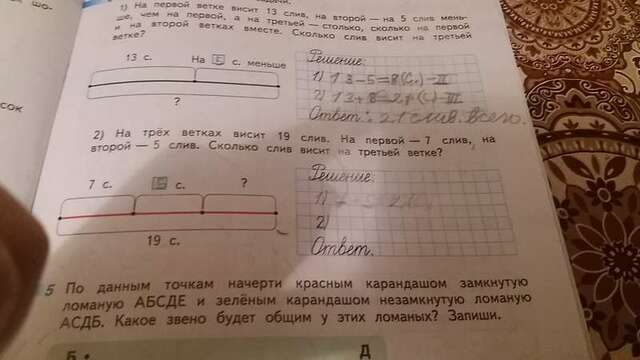 1) На первой ветке висит 13 слив, на второй — на 5 слив мень-
ше, чем на первой, а на третьей — столько, сколько на первой
и на второй ветках вместе. Сколько слив висит на третьей
ветке?
13 с. На 5 с. меньше
?
Решение:
1) 13-5=8(с.)-II
2) 13+8=21(с)-III
Ответ: 21 слив. всего.
сок
2) На трёх ветках висит 19 слив. На первой — 7 слив, на
второй — 5 слив. Сколько слив висит на третьей ветке?
7 с. с. ?
19 с.
Решение:
1)
2)
Ответ.
5 По данным точкам начерти красным карандашом замкнутую
ломаную АБСДЕ и зелёным карандашом незамкнутую ломаную
АСДБ. Какое звено будет общим у этих ломаных? Запиши.
Б Д